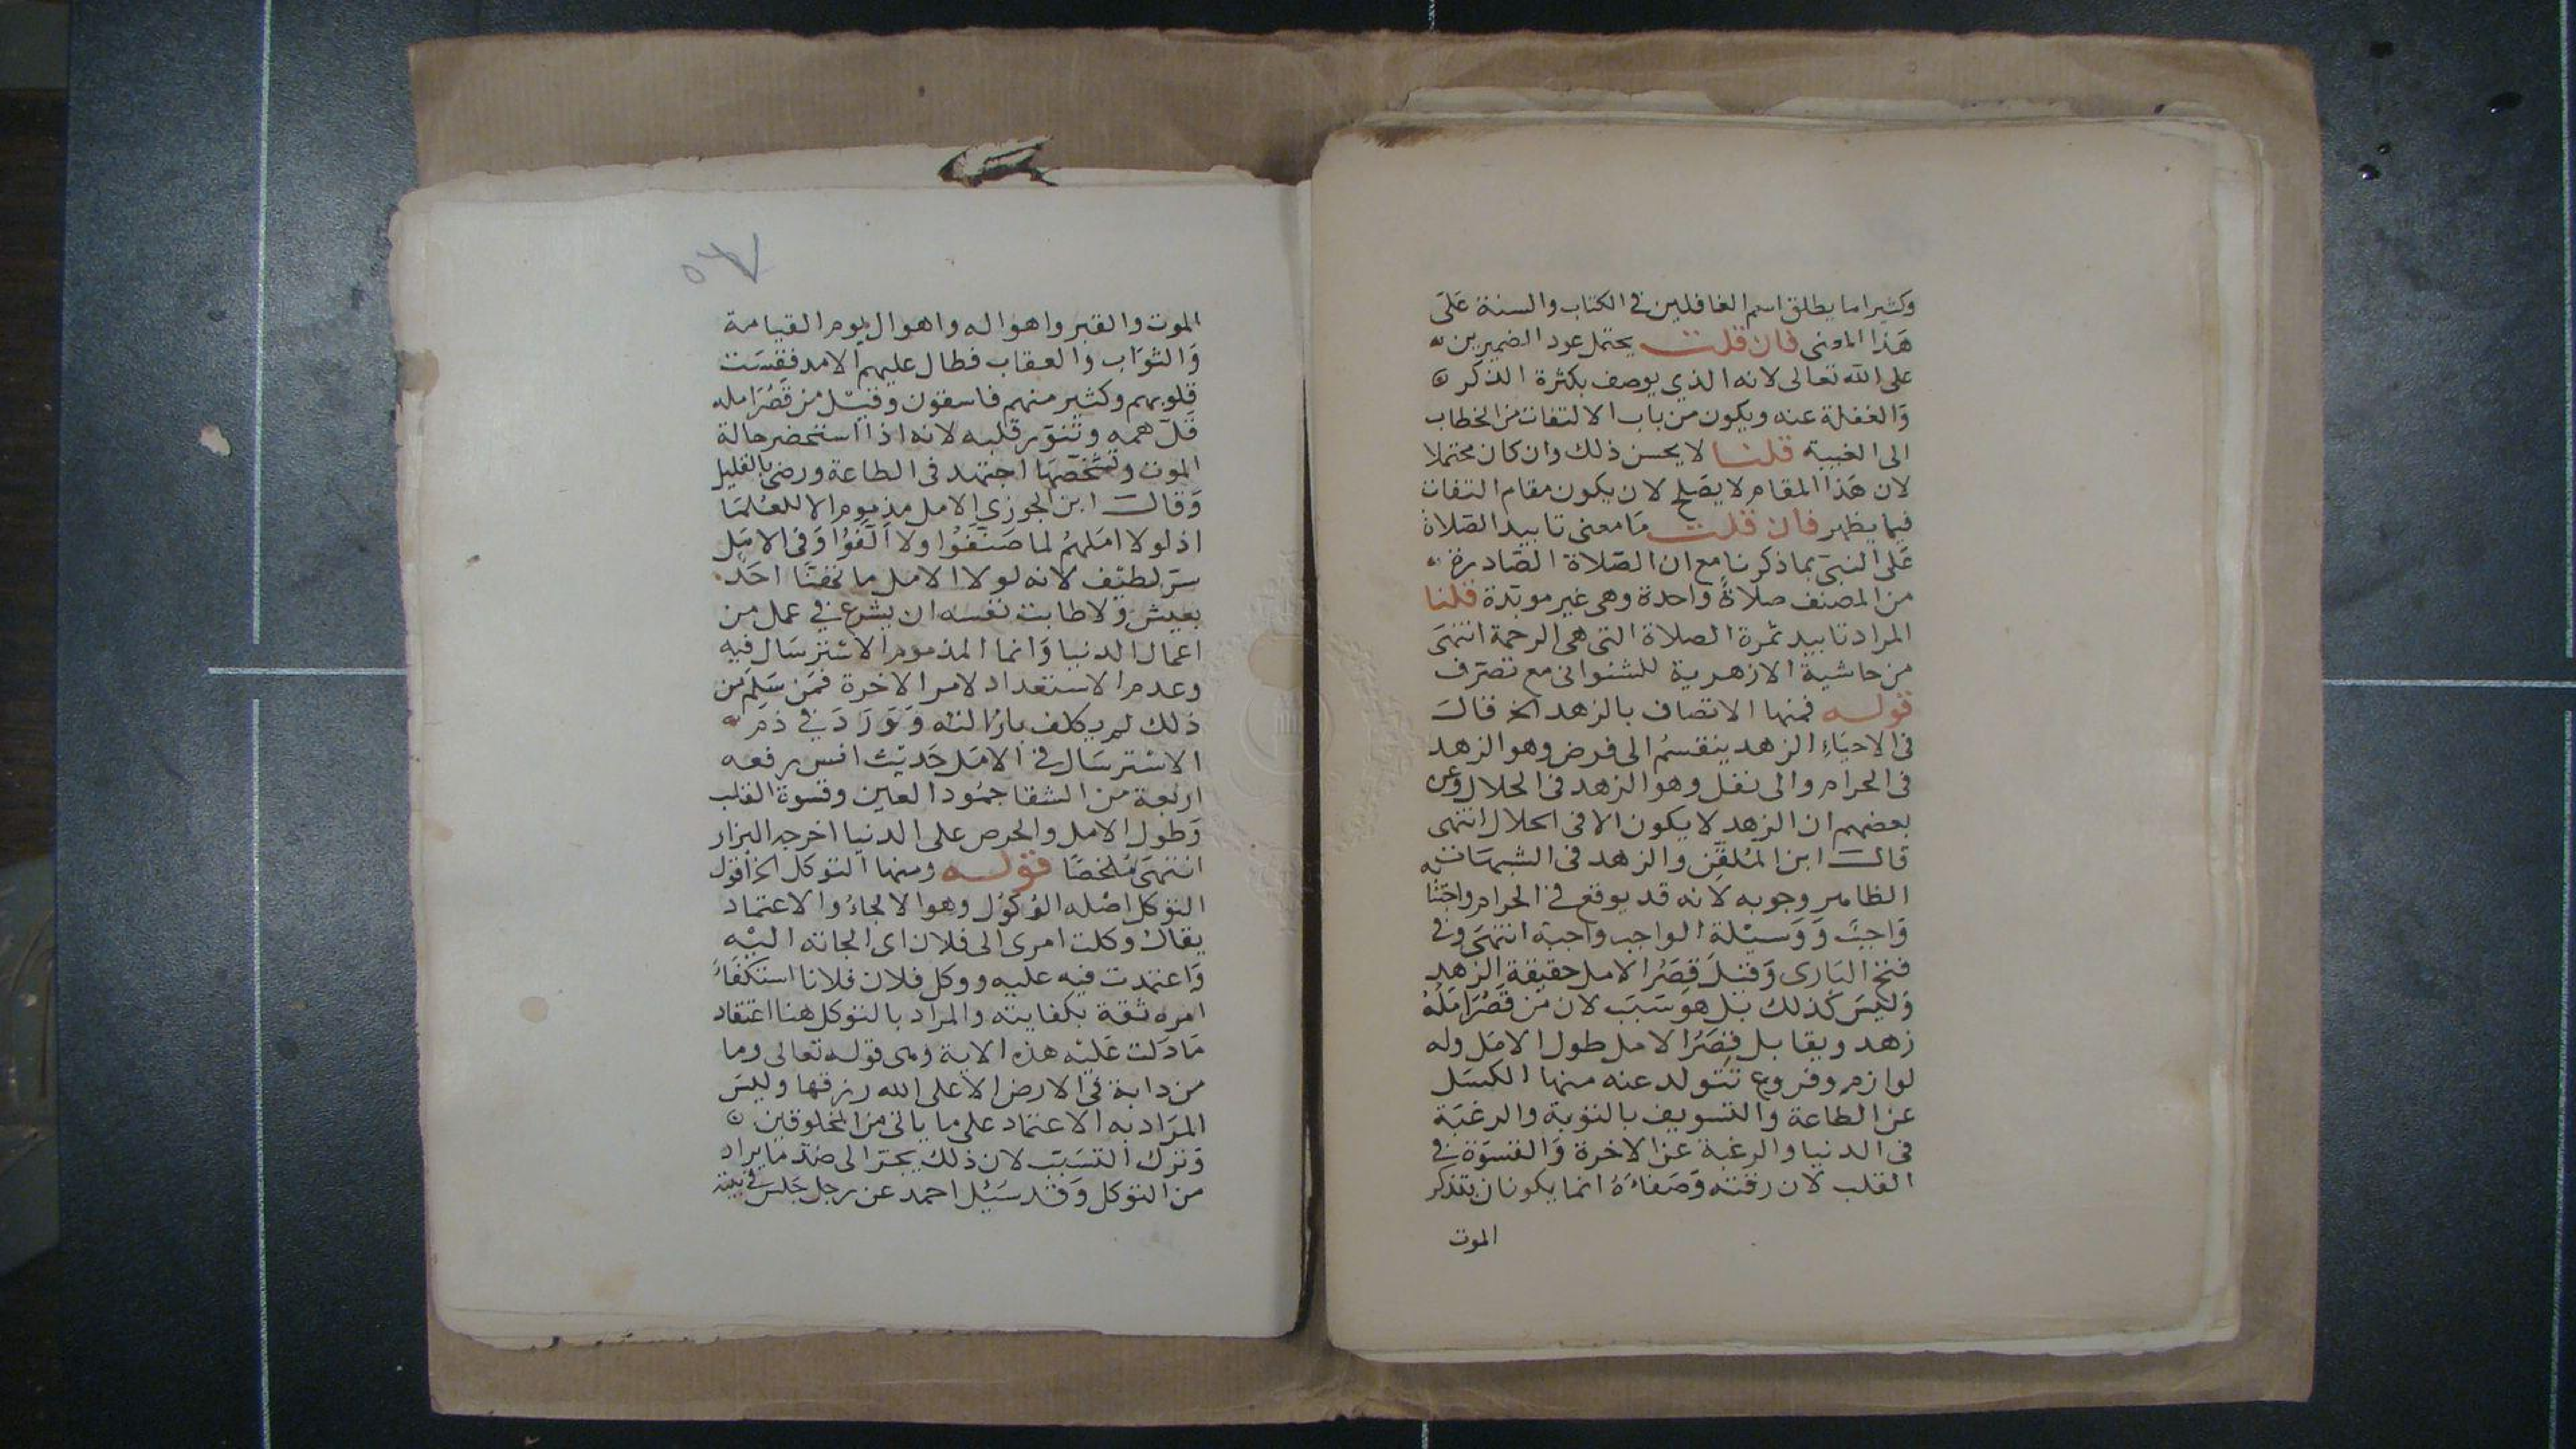 وكثيرا ما يطلق اسم الغافلين في الكتاب والسنة على
هذا المعنى فان قلت يحتمل عود الضميرين
على الله تعالى لانه الذي يوصف بكثرة الذكر
والغفلة عنه ويكون من باب الالتفات من الخطاب
الى الغيبة قلنا لا يحسن ذلك وان كان محتملا
لان هذا المقام لا يصلح لان يكون مقام التفات
فيما يظهر فان قلت ما معنى تابيد الصلاة
على النبي بما ذكرنا مع ان الصلاة الصادرة
من المصنف صلاة واحدة وهى غير موبدة قلنا
المراد تابيد ثمرة الصلاة التى هى الرحمة انتهى
من حاشية الازهرية للشنوانى مع تصرف
قوله فمنها الاتصاف بالزهد الخ قال
فى الاحياء الزهد ينقسم الى فرض وهو الزهد
فى الحرام والى نفل وهو الزهد فى الحلال وعن
بعضهم ان الزهد لا يكون الا فى الحلال انتهى
قال ابن الملقن والزهد فى الشبهات
الظاهر وجوبه لانه قد يوقع في الحرام واجتنابه
واجب ووسيلة الواجب واجبة انتهى وفى
فتح البارى وقيل قصر الامل حقيقة الزهد
وليس كذلك بل هو سبب لان من قصر امله
زهد ويقابل قصر الامل طول الامل وله
لوازم وفروع تتولد عنه منها الكسل
عن الطاعة والتسويف بالتوبة والرغبة
فى الدنيا والرغبة عن الاخرة والقسوة في
القلب لان رقته وصفاءه انما يكونان بتذكر
الموت
٥٦٧
الموت والقبر واهواله واهوال يوم القيامة
والثواب والعقاب فطال عليهم الامد فقست
قلوبهم وكثير منهم فاسقون وقيل من قصر امله
قل همه وتنور قلبه لانه اذا استحضر حالة
الموت اجتهد فى الطاعة ورضى بالقليل
وقال ابن الجوزي الامل مذموم الا للعلما
اذ لولا املهم لما صنفوا ولا الفوا وفى الامل
سر لطيف لانه لولا الامل ما احد
بعيش ولا طابت نفسه ان يشرع في عمل من
اعمال الدنيا وانما المذموم الاسترسال فيه
وعدم الاستعداد لامر الاخرة فمن سلم من
ذلك لم يكلف بازالته وورد في ذم
الاسترسال في الامل حديث انس رفعه
اربعة من الشقا جمود العين وقسوة القلب
وطول الامل والحرص على الدنيا اخرجه البزار
انتهى ملخصا قوله ومنها التوكل الخ اقول
التوكل اصله الوكول وهو الالجاء والاعتماد
يقال وكلت امرى الى فلان اى الجاته اليه
واعتمدت فيه عليه ووكل فلان فلانا استكفاه
امره ثقة بكفايته والمراد بالتوكل هنا اعتقاد
ما دلت عليه هذه الاية وهى قوله تعالى وما
من دابة في الارض الا على الله رزقها وليس
المراد به الاعتماد على ما ياتى من المخلوقين
وترك التسبب لان ذلك يجر الى ضد ما يراد
من التوكل وقد سئل احمد عن رجل جلس في بيته